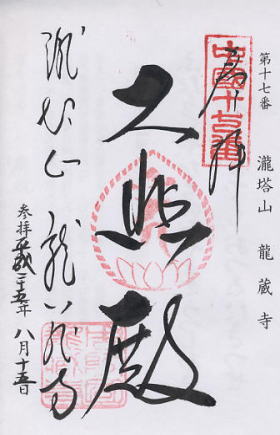 第十七番 瀧塔山 龍蔵寺
中國十七番
奉拝
大悲殿
瀧塔山 龍蔵寺
参拝平成二十五年八月十五日